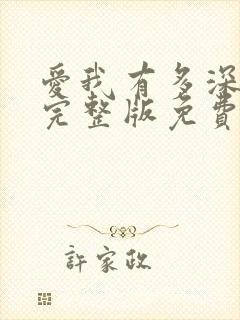 愛我有多深
完整版免費
許家政